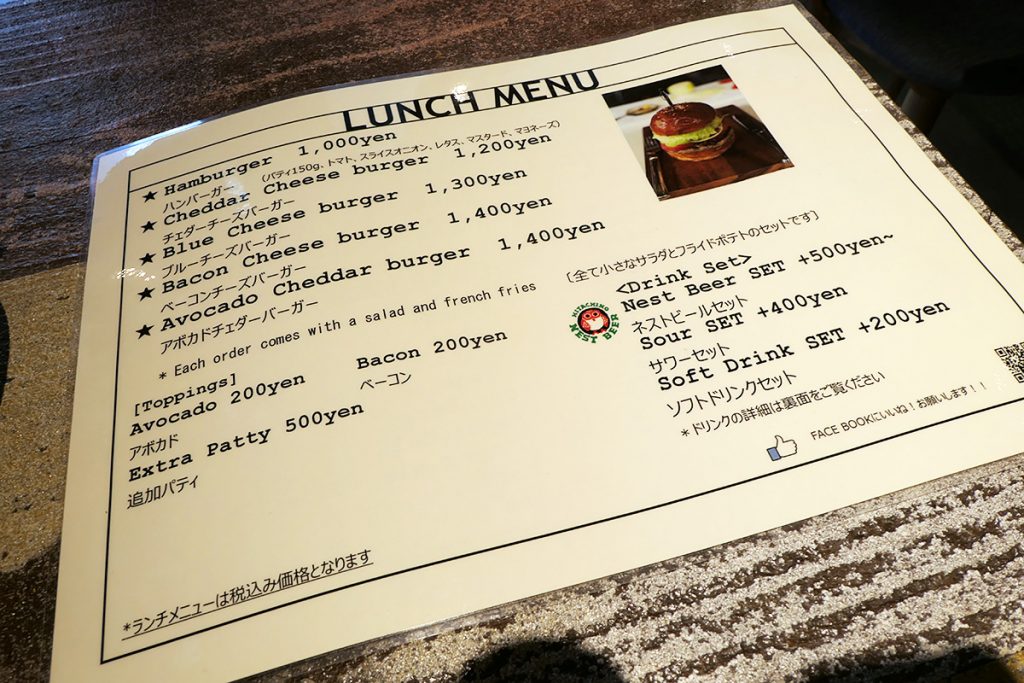 LUNCH MENU
★ Hamburger 1,000yen
ハンバーガー (パティ150g、トマト、スライスオニオン、レタス、マスタード、マヨネーズ)
★ Cheddar Cheese burger 1,200yen
チェダーチーズバーガー
★ Blue Cheese burger 1,300yen
ブルーチーズバーガー
★ Bacon Cheese burger 1,400yen
ベーコンチーズバーガー
★ Avocado Cheddar burger 1,400yen
アボカドチェダーバーガー
* Each order comes with a salad and french fries
[Toppings]
Avocado 200yen Bacon 200yen
アボカド ベーコン
Extra Patty 500yen
追加パティ
*ランチメニューは税込み価格となります
〔全て小さなサラダとフライドポテトのセットです〕
<Drink Set>
Nest Beer SET +500yen~
ネストビールセット
Sour SET +400yen
サワーセット
Soft Drink SET +200yen
ソフトドリンクセット
*ドリンクの詳細は裏面をご覧ください
FACE BOOKにいいね！お願いします！！
HITACHINO
NEST BEER